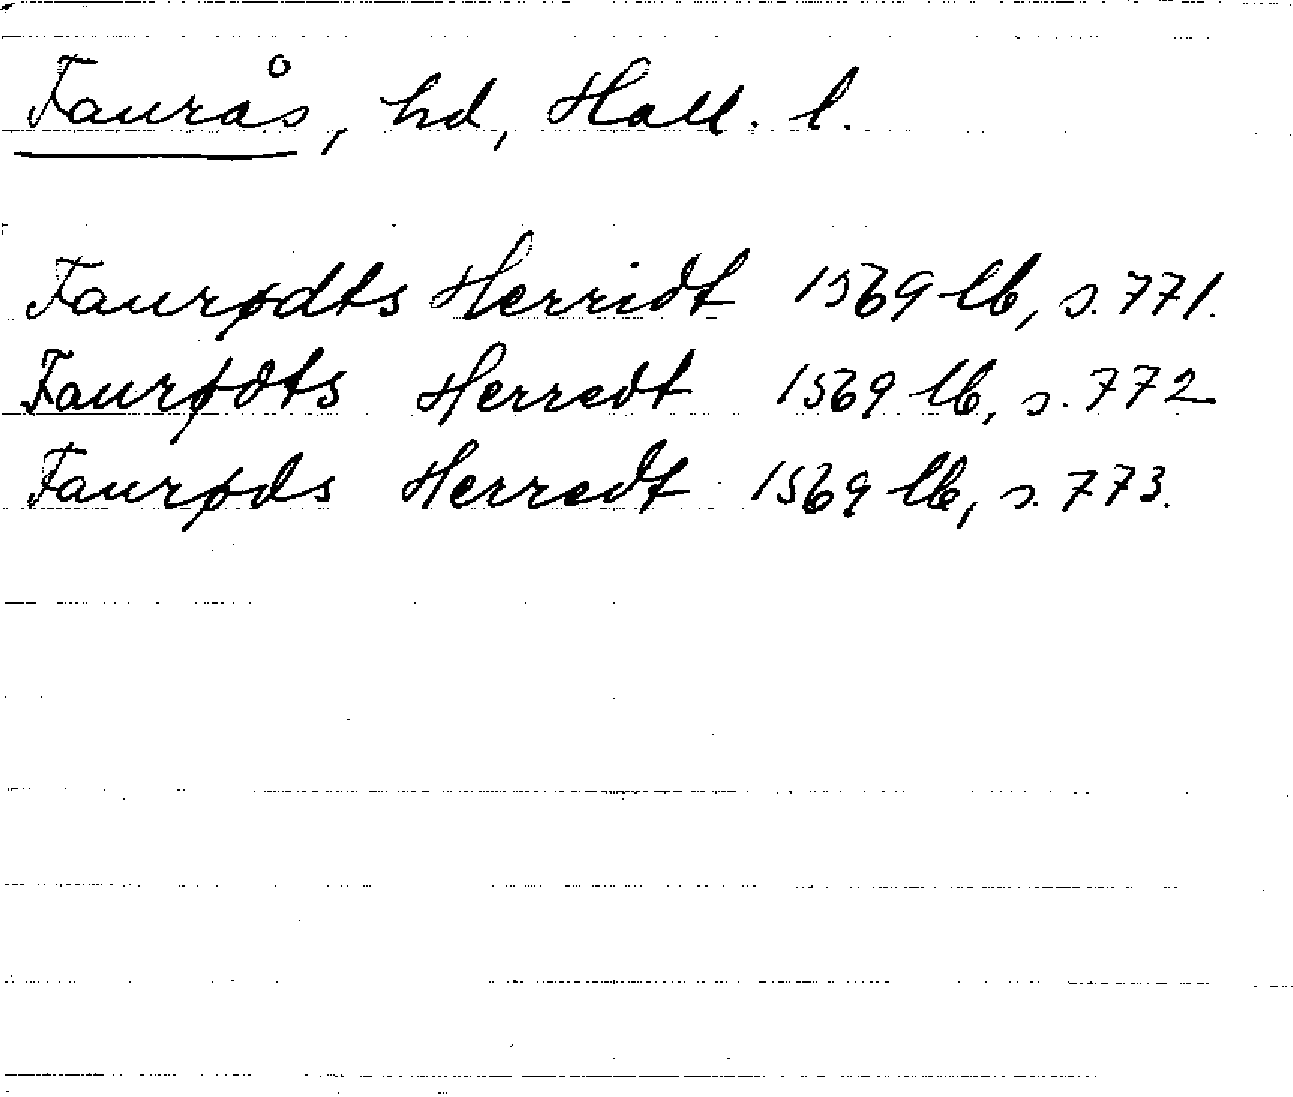 Faurås, hd, Hall. l.
Faurødts Herridt 1569 lb, s. 771.
Faurødts Herredt 1569 lb, s. 772
Faurøds Herredt 1569 lb, s. 773.